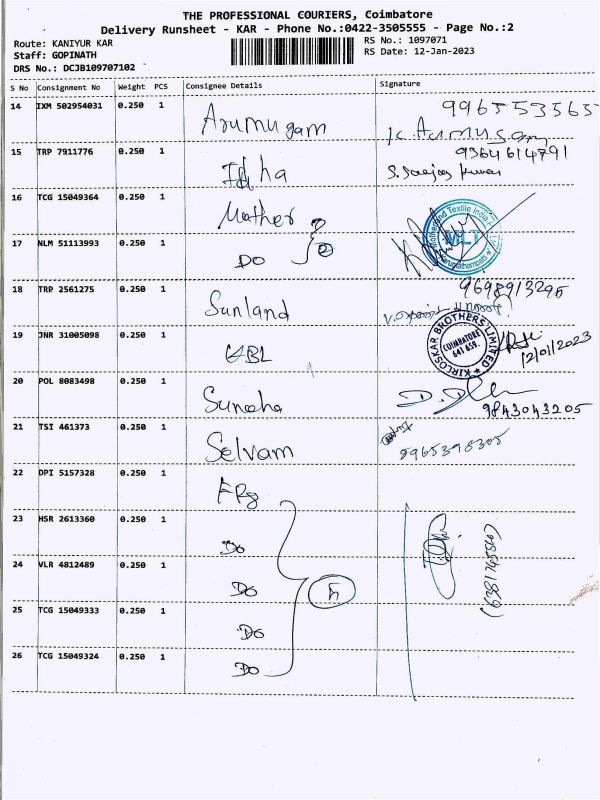 THE PROFESSIONAL COURIERS, Coimbatore
Delivery Runsheet - KAR - Phone No.:0422-3505555 - Page No.:2
Route: KANIYUR KAR
RS No.: 1097071
Staff: GOPINATH
RS Date: 12-Jan-2023
DRS No.: DCJB109707102
S No Consignment No Weight PCS Consignee Details Signature
14 IXM 502954031 0.250 1 Arumugam 9965535657
K Arumugam
15 TRP 7911776 0.250 1 9364614791
16 TCG 15049364 0.250 1 Mather
Textile India
MLT
17 NLM 51113993 0.250 1 Do 2
18 TRP 2561275 0.250 1 Sunland 9698913295
19 JNR 31005098 0.250 1 KBL
KIRLOSKAR BROTHERS LIMITED
COIMBATORE
641 659.
12/01/2023
20 POL 8083498 0.250 1
9843043205
21 TSI 461373 0.250 1 Selvam
22 DPI 5157328 0.250 1
23 HSR 2613360 0.250 1 Do
24 VLR 4812489 0.250 1 Do
25 TCG 15049333 0.250 1 Do
26 TCG 15049324 0.250 1 Do